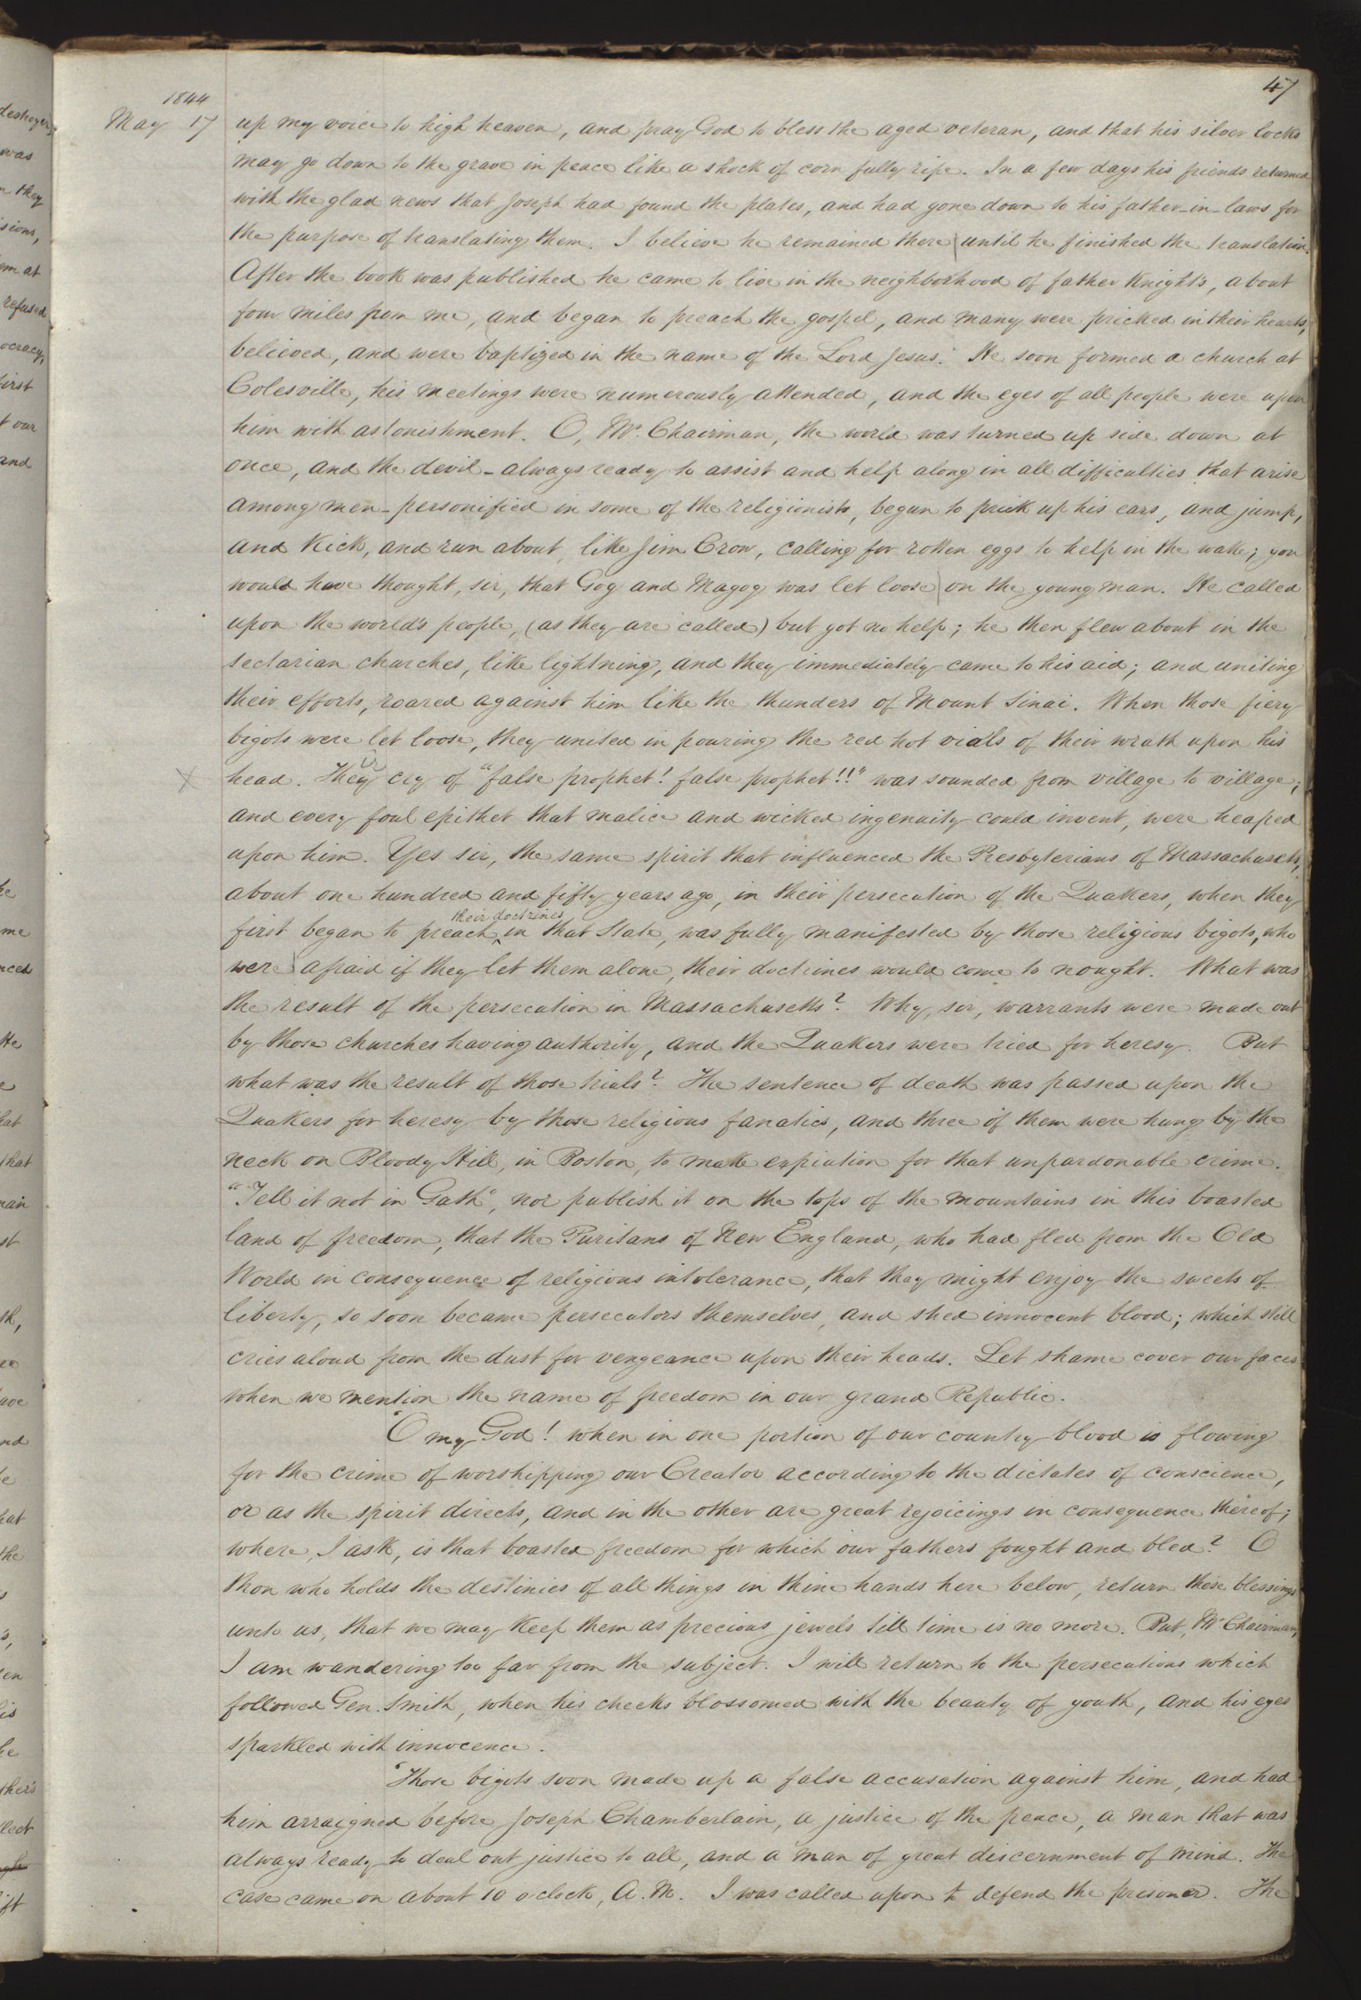 47
1844
May 17 up my voice to high heaven, and pray God to bless the aged veteran, and that his silver locks
may go down to the grave in peace like a shock of corn fully ripe. In a few days his friends returned
with the glad news that Joseph had found the plates, and had gone down to his father-in-laws for
the purpose of translating them. I believe he remained there until he finished the translation.
After the book was published he came to live in the neighborhood of father Knight's, about
four miles from me, and began to preach the gospel, and many were pricked in their hearts,
believed, and were baptized in the name of the Lord Jesus. He soon formed a church at
Colesville, his meetings were numerously attended, and the eyes of all people were upon
him with astonishment. O, Mr. Chairman, the world was turned up side down at
once, and the devil - always ready to assist and help along in all difficulties that arise
among men - personified in some of the religionists, begun to prick up his ears, and jump,
and kick, and run about, like Jim Crow, calling for rotten eggs to help in the wake; you
would have thought, sir, that Gog and Magog was let loose on the young man. He called
upon the world's people, (as they are called) but got no help; he then flew about in the
sectarian churches, like lightning, and they immediately came to his aid; and uniting
their efforts, roared against him like the thunders of Mount Sinai. When those fiery
bigots were let loose, they united in pouring the red hot vials of their wrath upon his
head. They cry of "false prophet! false prophet!!" was sounded from village to village;
and every foul epithet that malice and wicked ingenuity could invent, were heaped
upon him. Yes sir, the same spirit that influenced the Presbyterians of Massachusetts,
about one hundred and fifty years ago, in their persecution of the Quakers, when they
first began to preach their doctrines in that State, was fully manifested by those religious bigots, who
were afraid if they let them alone, their doctrines would come to nought. What was
the result of the persecution in Massachusetts? Why, sir, warrants were made out
by those churches having authority, and the Quakers were tried for heresy. But
what was the result of those trials? The sentence of death was passed upon the
Quakers for heresy by those religious fanatics, and three of them were hung by the
neck on Bloody Hill, in Boston, to make expiation for that unpardonable crime.
"Tell it not in Gath", nor publish it on the tops of the mountains in this boasted
land of freedom, that the Puritans of New England, who had fled from the Old
World in consequence of religious intolerance, that they might enjoy the sweets of
liberty, so soon became persecutors themselves, and shed innocent blood; which still
cries aloud from the dust for vengeance upon their heads. Let shame cover our faces
when we mention the name of freedom in our grand Republic.
"O my God! when in one portion of our country blood is flowing
for the crime of worshipping our Creator according to the dictates of conscience,
or as the spirit directs, and in the other are great rejoicings in consequence thereof;
where, I ask, is that boasted freedom for which our fathers fought and bled? O
thou who holds the destinies of all things in thine hands here below, return these blessings
unto us, that we may keep them as precious jewels till time is no more. But, Mr Chairman,
I am wandering too far from the subject. I will return to the persecutions which
followed Gen. Smith, when his cheeks blossomed with the beauty of youth, and his eyes
sparkled with innocence.
"Those bigots soon made up a false accusation against him, and had
him arraigned before Joseph Chamberlain, a justice of the peace, a man that was
always ready to deal out justice to all, and a man of great discernment of mind. The
case came on about 10 o'clock, A. M. I was called upon to defend the prisoner. The